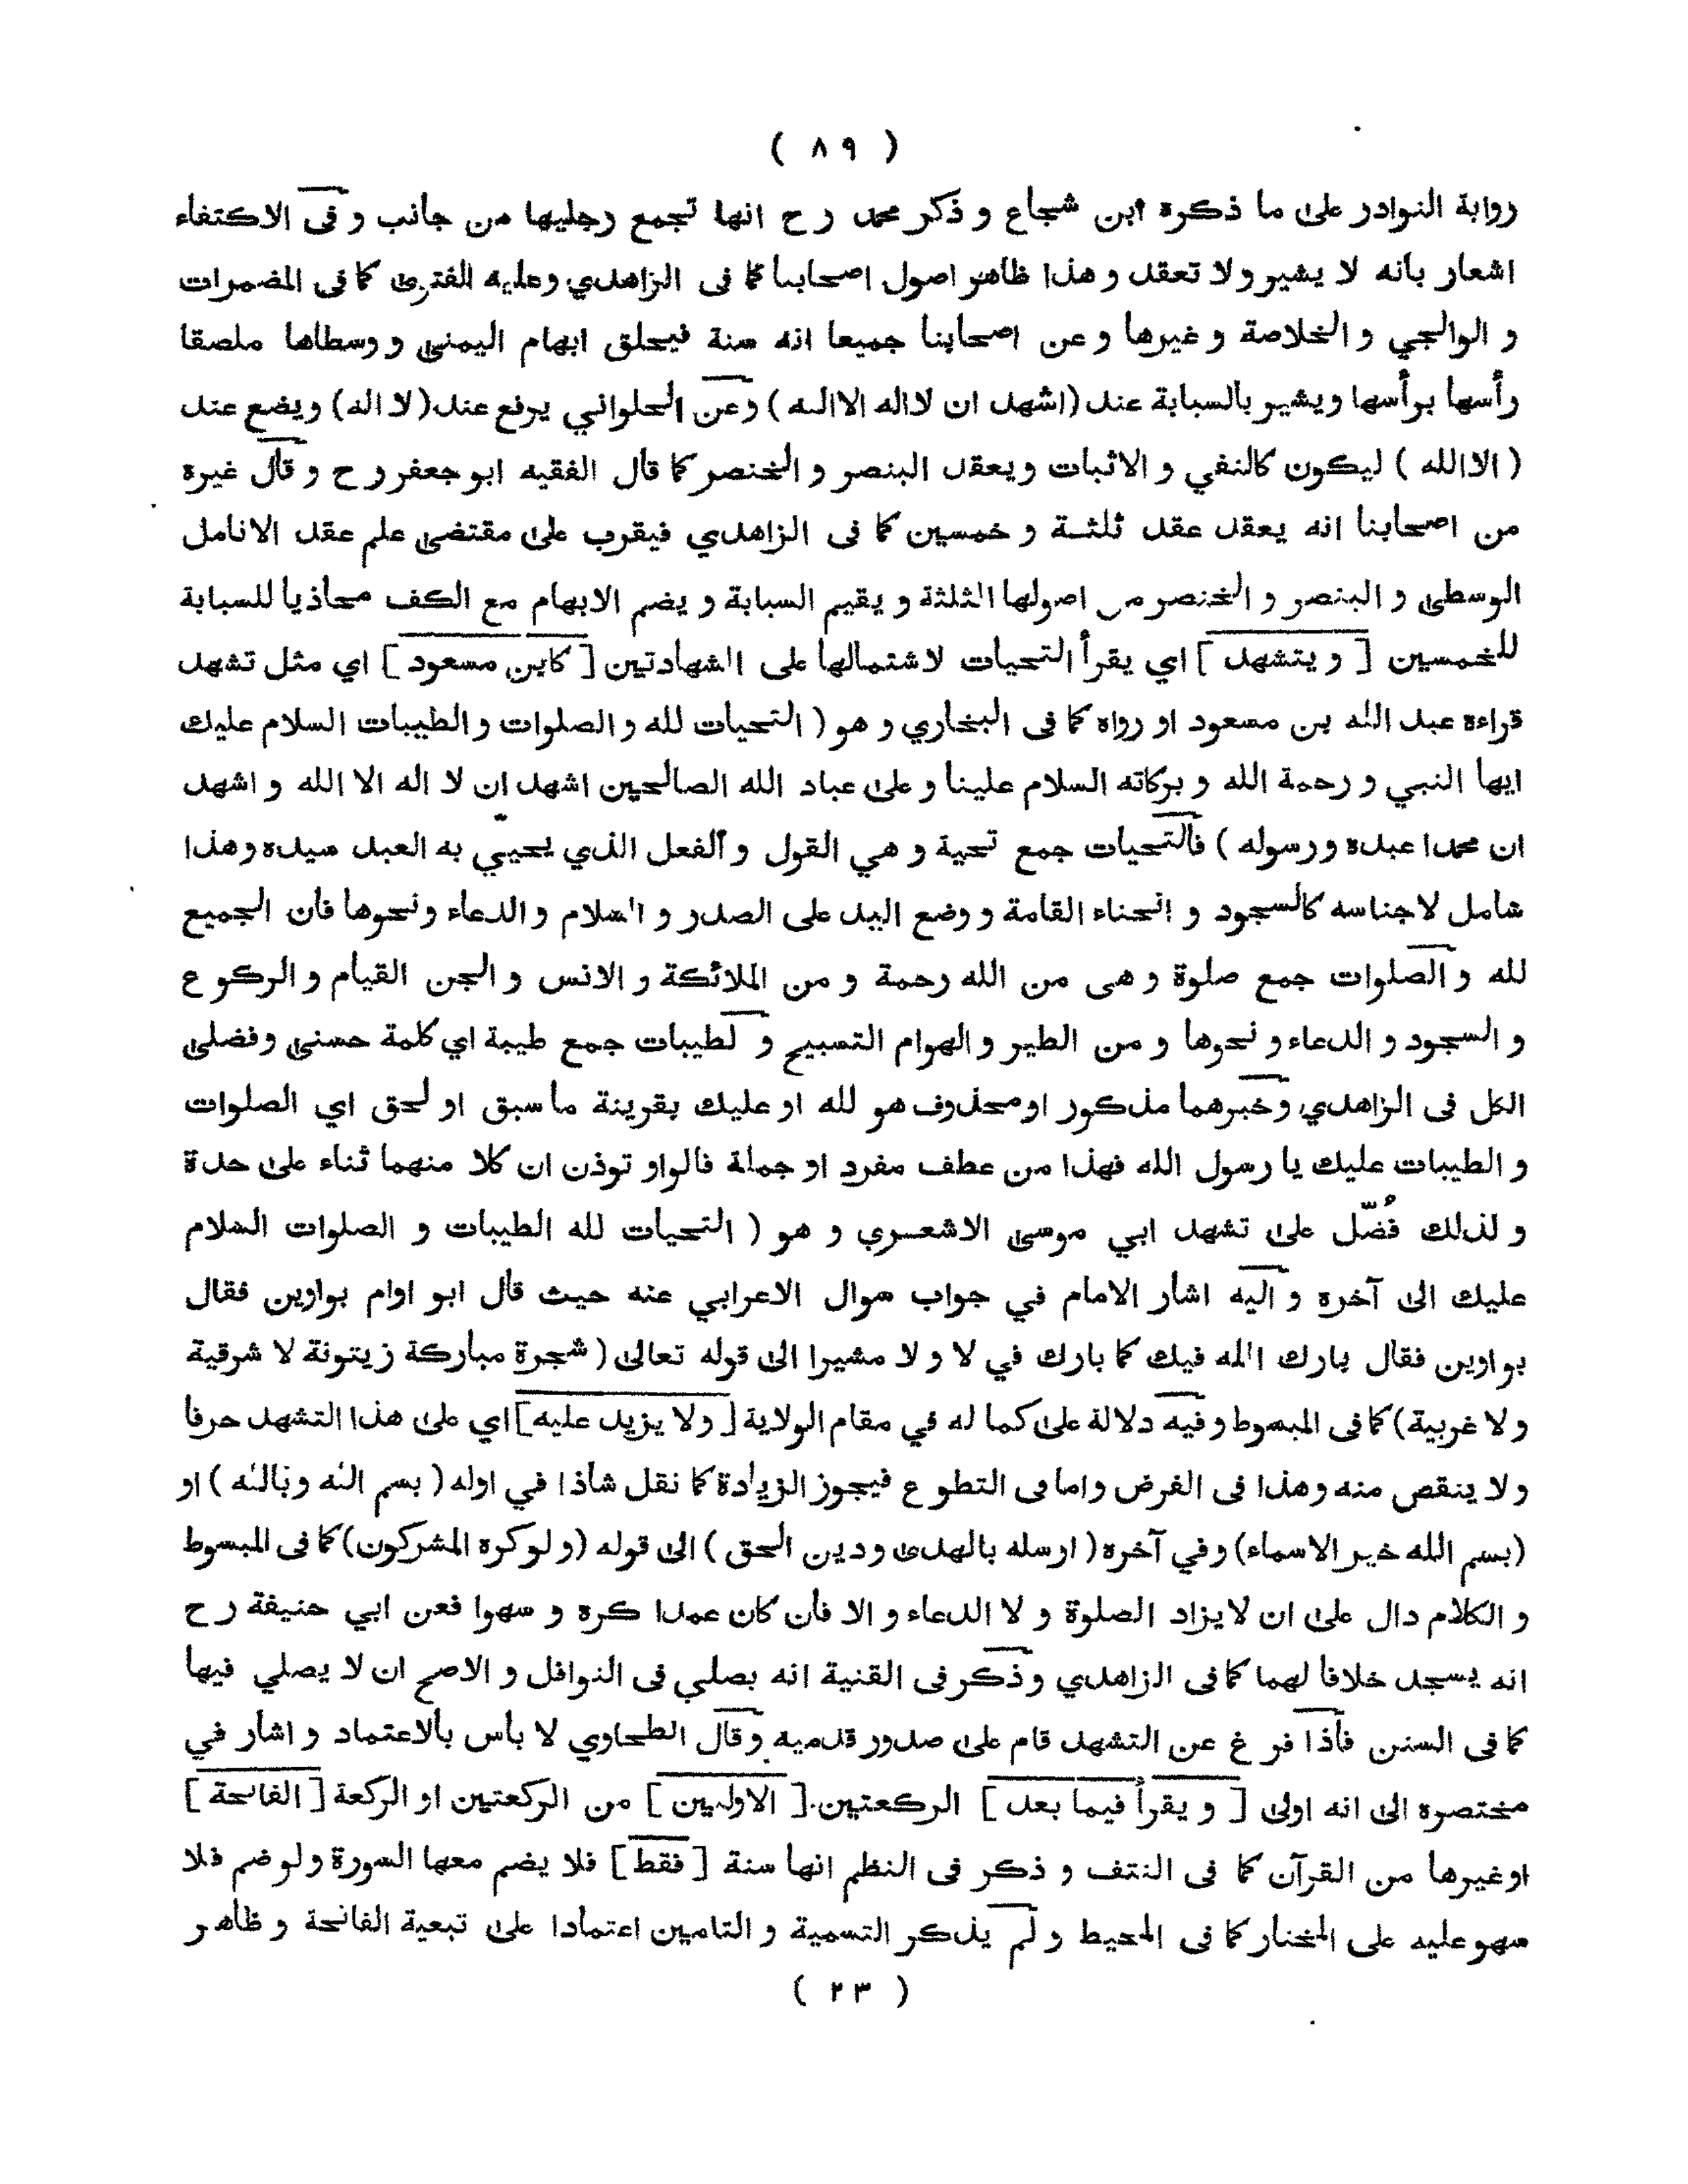 ( ٨٩ )
رواية النوادر على ما ذكره ابن شجاع و ذكر محمد رح انها تجمع رجليها من جانب و فى الاكتفاء
اشعار بانه لا يشير ولا تعقد و هذا ظاهر اصول اصحابنا كما فى الزاهدي وعليه الفتوى كما فى المضمرات
و الوالجي و الخلاصة و غيرها و عن اصحابنا جميعا انه سنة فيحلق ابهام اليمنى و وسطاها ملصقا
رأسها برأسها ويشير بالسبابة عند (اشهد ان لااله الاالله ) وعن الحلواني يرفع عند(لا اله) ويضع عند
( الاالله ) ليكون كالنفي و الاثبات ويعقد البنصر و الخنصر كما قال الفقيه ابو جعفر رح و قال غيره
من اصحابنا انه يعقد عقد ثلثة و خمسين كما فى الزاهدي فيقرب على مقتضى علم عقد الانامل
الوسطى و البنصر و الخنصر من اصولها الثلثة و يقيم السبابة و يضم الابهام مع الكف محاذيا للسبابة
للخمسين [ و يتشهد ] اي يقرأ التحيات لاشتمالها على الشهادتين [ كابن مسعود ] اي مثل تشهد
قراءة عبد الله بن مسعود او رواه كما فى البخاري و هو ( التحيات لله و الصلوات و الطيبات السلام عليك
ايها النبي و رحمة الله و بركاته السلام علينا و على عباد الله الصالحين اشهد ان لا اله الا الله و اشهد
ان محمدا عبده و رسوله ) فالتحيات جمع تحية و هي القول و الفعل الذي يحيّي به العبد سيده وهذا
شامل لاجناسه كالسجود و انحناء القامة و وضع اليد على الصدر و السلام و الدعاء ونحوها فان الجميع
لله و الصلوات جمع صلوة و هى من الله رحمة و من الملائكة و الانس و الجن القيام و الركوع
و السجود و الدعاء و نحوها و من الطير و الهوام التسبيح و لطيبات جمع طيبة اي كلمة حسنى وفضلى
الكل فى الزاهدي وخبرهما مذكور اومحذوف هو لله او عليك بقرينة ما سبق او لحق اي الصلوات
و الطيبات عليك يا رسول الله فهذا من عطف مفرد او جملة فالواو توذن ان كلا منهما ثناء على حدة
و لذلك فُضّل على تشهد ابي موسى الاشعري و هو ( التحيات لله الطيبات و الصلوات السلام
عليك الى آخره و اليه اشار الامام في جواب سوال الاعرابي عنه حيث قال ابو اوام بواوين فقال
بواوين فقال بارك الله فيك كما بارك في لا و لا مشيرا الى قوله تعالى ( شجرة مباركة زيتونة لا شرقية
و لا غربية) كما فى المبسوط وفيه دلالة على كماله في مقام الولاية [ ولا يزيد عليه] اي على هذا التشهد حرفا
و لا ينقص منه وهذا فى الفرض واما فى التطوع فيجوز الزيادة كما نقل شاذا في اوله ( بسم الله وبالله ) او
(بسم الله خير الاسماء) وفي آخره ( ارسله بالهدى ودين الحق ) الى قوله (و لوكره المشركون) كما فى المبسوط
و الكلام دال على ان لايزاد الصلوة و لا الدعاء و الا فان كان عمدا كره و سهوا فعن ابي حنيفة رح
انه يسجد خلافا لهما كما فى الزاهدي و ذكر فى القنية انه يصلي فى النوافل و الاصح ان لا يصلي فيها
كما فى السنن فاذا فرغ عن التشهد قام على صدور قدميه وقال الطحاوي لا بأس بالاعتماد و اشار في
مختصره الى انه اولى [ و يقرأ فيما بعد ] الركعتين [ الاوليين ] من الركعتين او الركعة [ الفاتحة ]
اوغيرها من القرآن كما فى النتف و ذكر فى النظم انها سنة [ فقط ] فلا يضم معها السورة ولوضم فلا
سهوعليه على المختار كما فى المحيط و لم يذكر التسمية و التامين اعتمادا على تبعية الفاتحة و ظاهر
( ٢٣ )